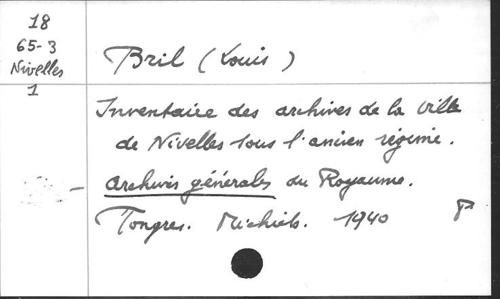 18
65-3
Nivelles
1
Bril (Louis)
Inventaire des archives de la ville
de Nivelles sous l'ancien régime.
Archives générales du Royaume.
Tongres. Michiels. 1940